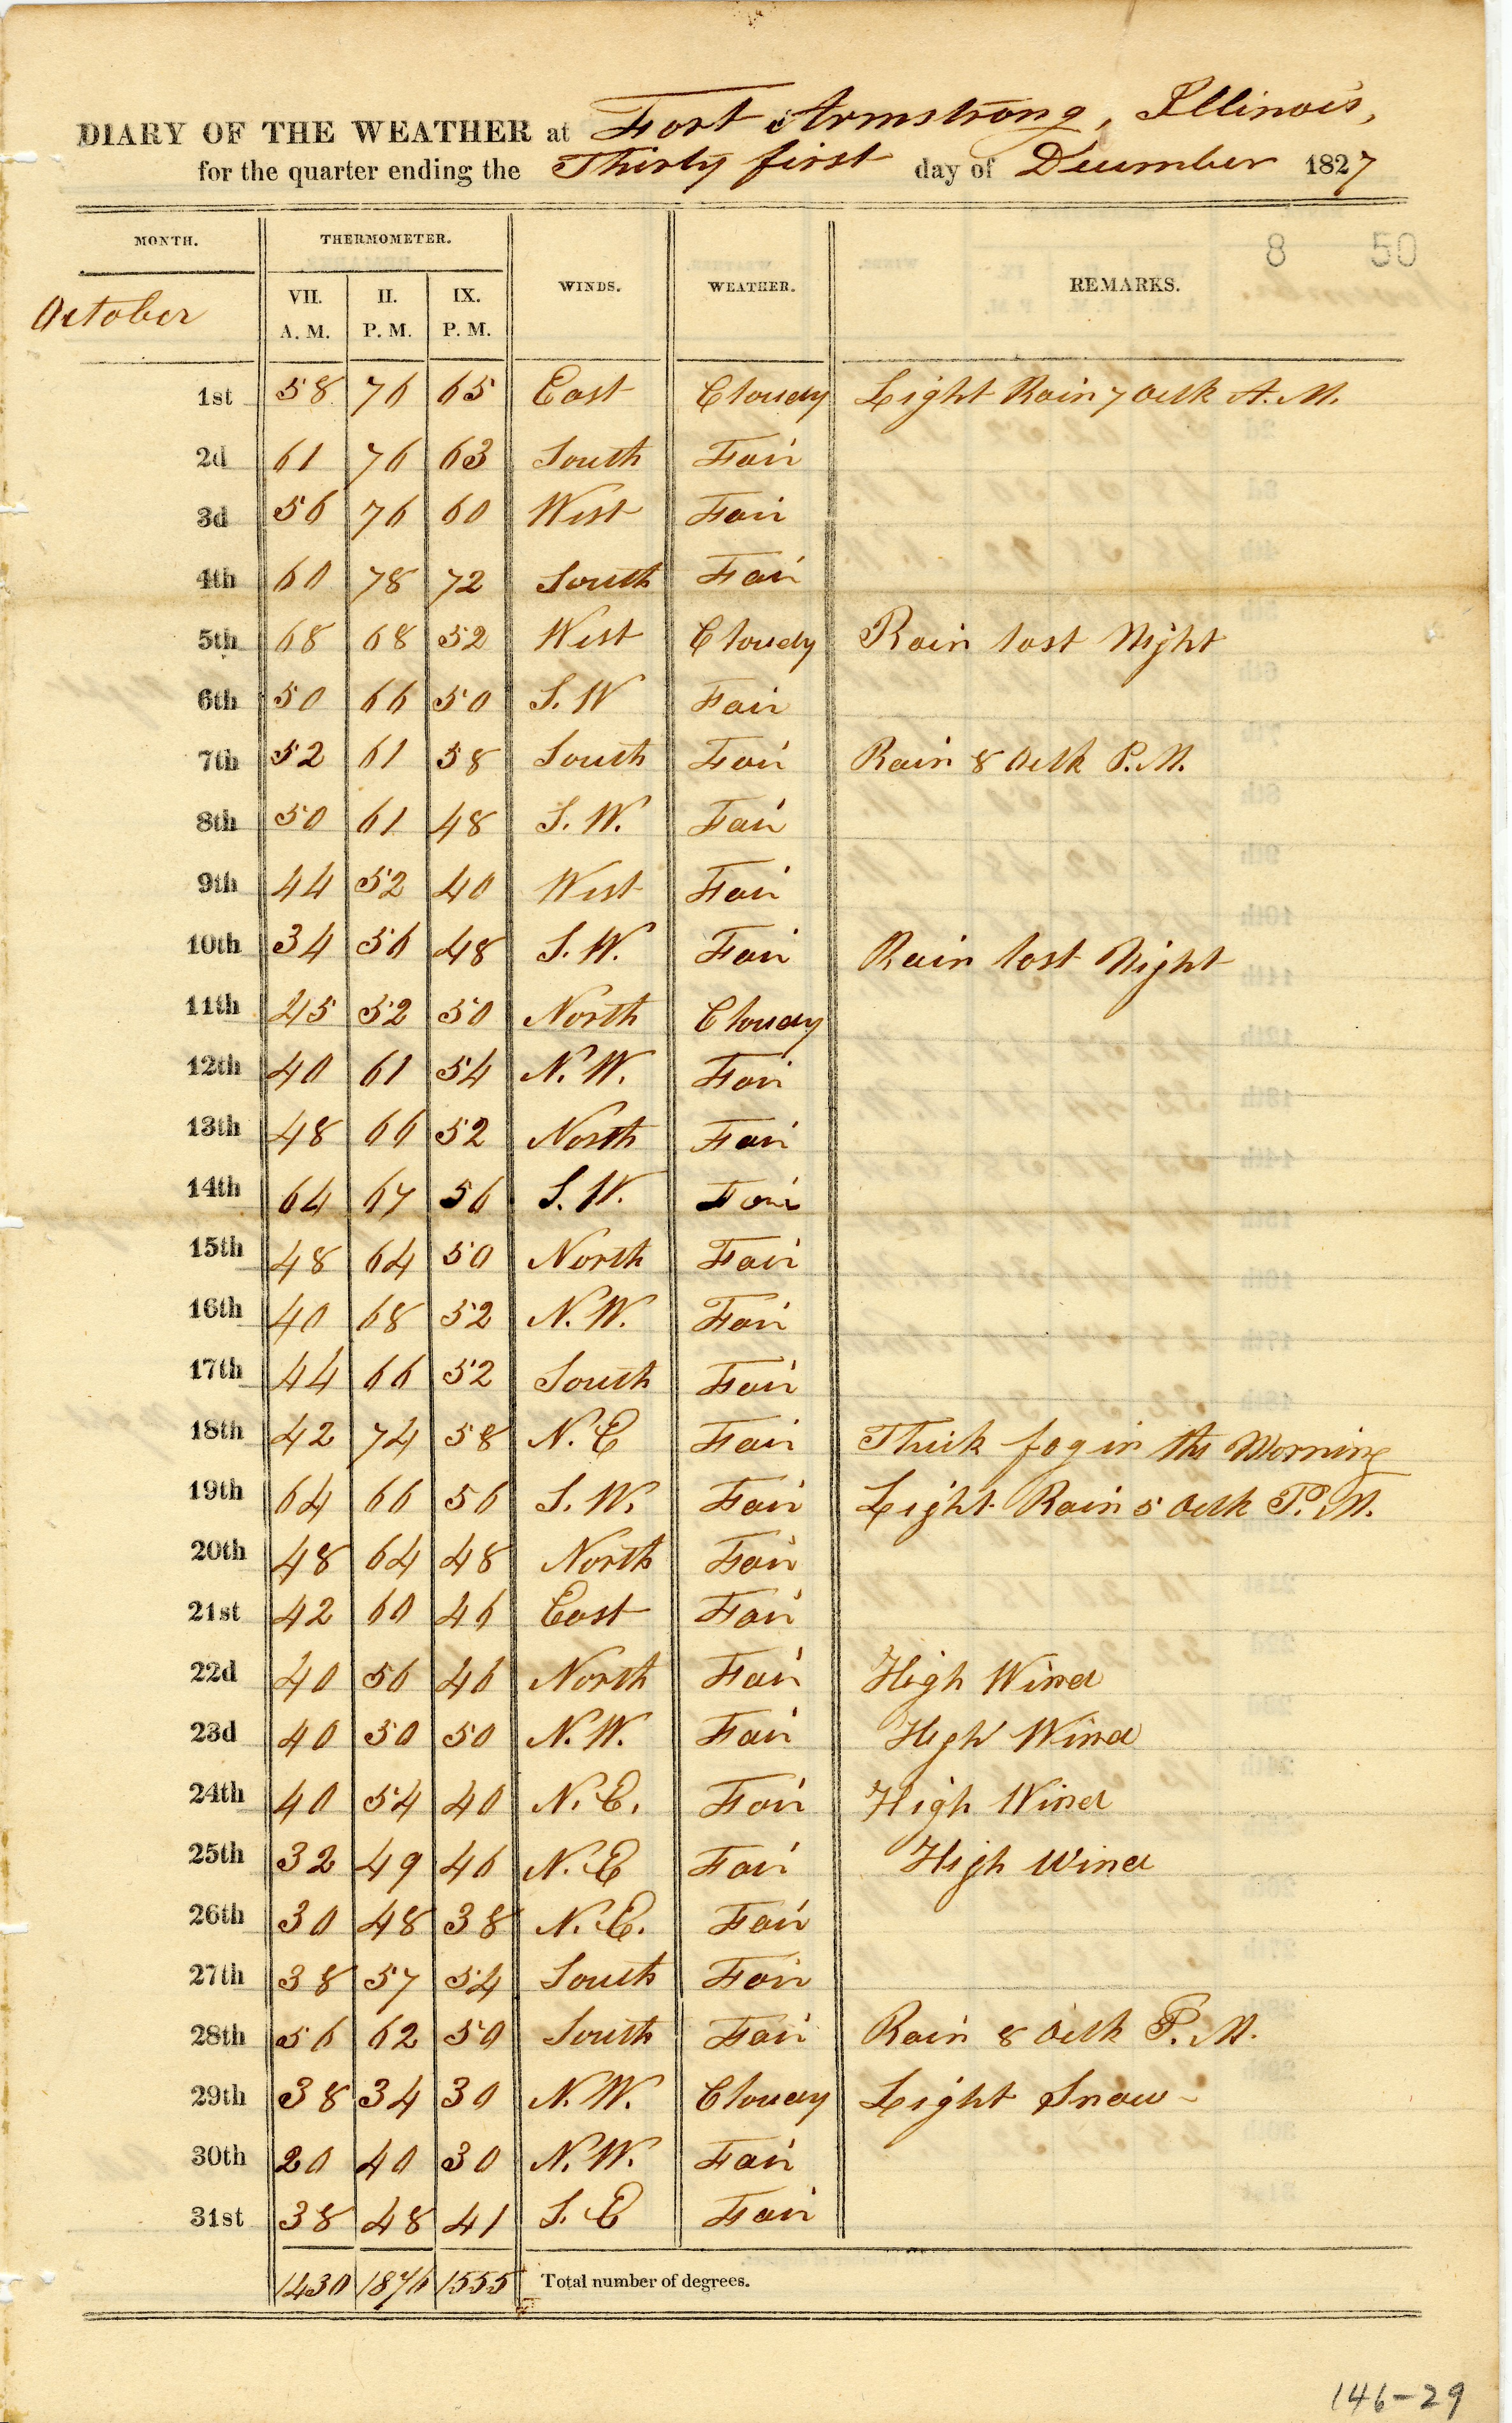 DIARY OF THE WEATHER at Fort Armstrong, Illinois,
for the quarter ending the Thirty first day of December 1827
MONTH. THERMOMETER. WINDS. WEATHER. REMARKS. 8 50
October VII. A. M. II. P. M. IX. P. M.
1st 58 76 65 East Cloudy Light Rain 7 Oclk A. M.
2d 61 76 63 South Fair
3d 56 76 60 West Fair
4th 60 78 72 South Fair
5th 68 68 52 West Cloudy Rain last Night
6th 50 66 50 S. W Fair
7th 52 61 58 South Fair Rain 8 Oclk P. M.
8th 50 61 48 S. W. Fair
9th 44 52 40 West Fair
10th 34 56 48 S. W. Fair Rain last Night
11th 45 52 50 North Cloudy
12th 40 61 54 N. W. Fair
13th 48 66 52 North Fair
14th 64 67 56 S. W. Fair
15th 48 64 50 North Fair
16th 40 68 52 N. W. Fair
17th 44 66 52 South Fair
18th 42 74 58 N. E Fair Thick fog in the Morning
19th 64 66 56 S. W. Fair Light Rain 5 Oclk P. M.
20th 48 64 48 North Fair
21st 42 60 46 East Fair
22d 40 56 46 North Fair High Wind
23d 40 50 50 N. W. Fair High Wind
24th 40 54 40 N. E. Fair High Wind
25th 32 49 46 N. E Fair High Wind
26th 30 48 38 N. E. Fair
27th 38 57 54 South Fair
28th 56 62 50 South Fair Rain 8 Oclk P. M.
29th 38 34 30 N. W. Cloudy Light Snow
30th 20 40 30 N. W. Fair
31st 38 48 41 S. E Fair
1430 1876 1555 Total number of degrees.
146-29